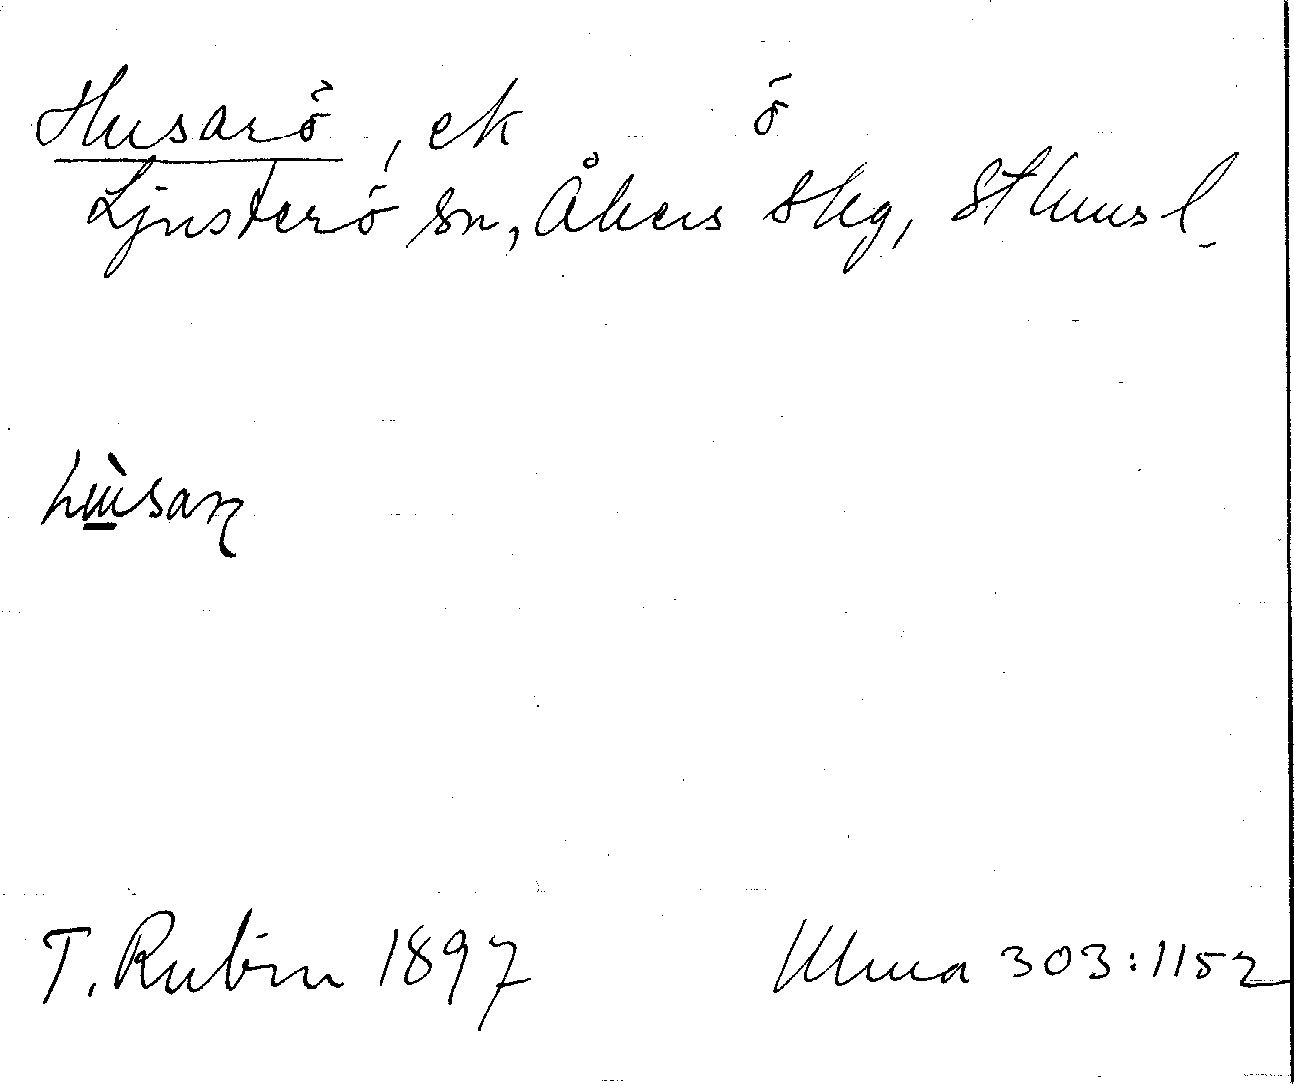 Husarö, ek ö
Ljusterö sn, Åkers Skg, Sthms l.
hùsaɽ
T. Rubin 1897 Ulma 303:1152